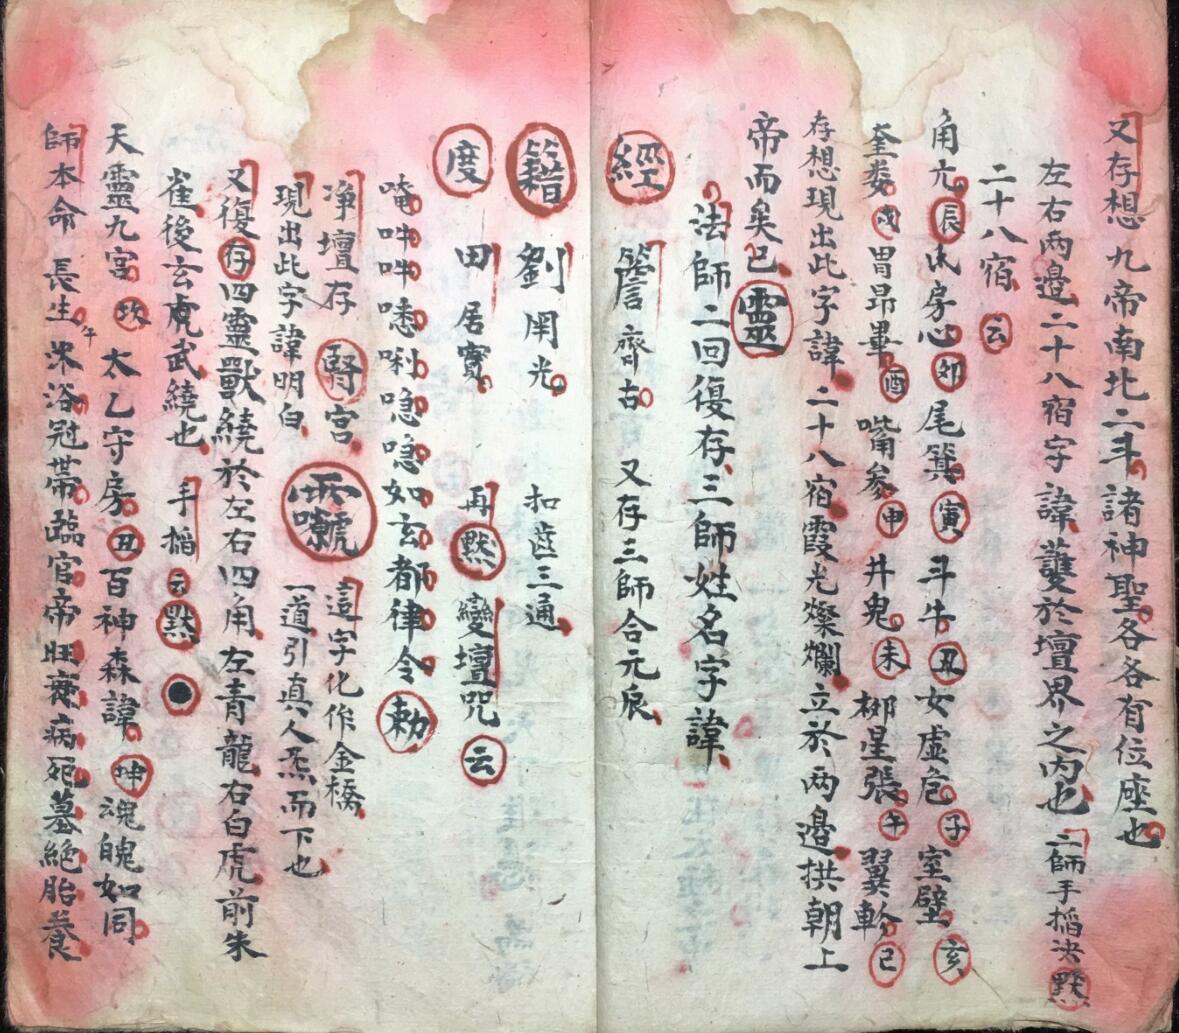 又存想九帝南北二斗諸神聖各各有位座也
左右两邉二十八宿字諱護於壇界之内也 二師手搯决黙
二十八宿云
角亢辰氐房心卯尾箕寅斗牛丑女虚危子室壁亥
奎娄戌胃昴畢酉嘴参申井鬼未栁星張午翼軫巳
存想現出此字諱二十八宿霞光燦爛立於两邉拱朝上
帝而矣已靈
法師二回復存三師姓名字諱
經 簷齊古 又存三師合元辰
籍 劉用光 扣齒三通
度 田居實 再黙變壇咒云
唵吽吽㗭唎隐隐如玄都律令勅
净壇存腎宫 這字化作金橋
現出此字諱明白 一道引真人炁而下也
又復存四靈獸繞於左右四角左青龍右白虎前朱
雀後玄武繞也 手搯云黙
天靈九宫坎太乙守房丑百神森諱坤魂魄如同
師本命 長生午沐浴冠带臨官帝旺衰病死墓絶胎養